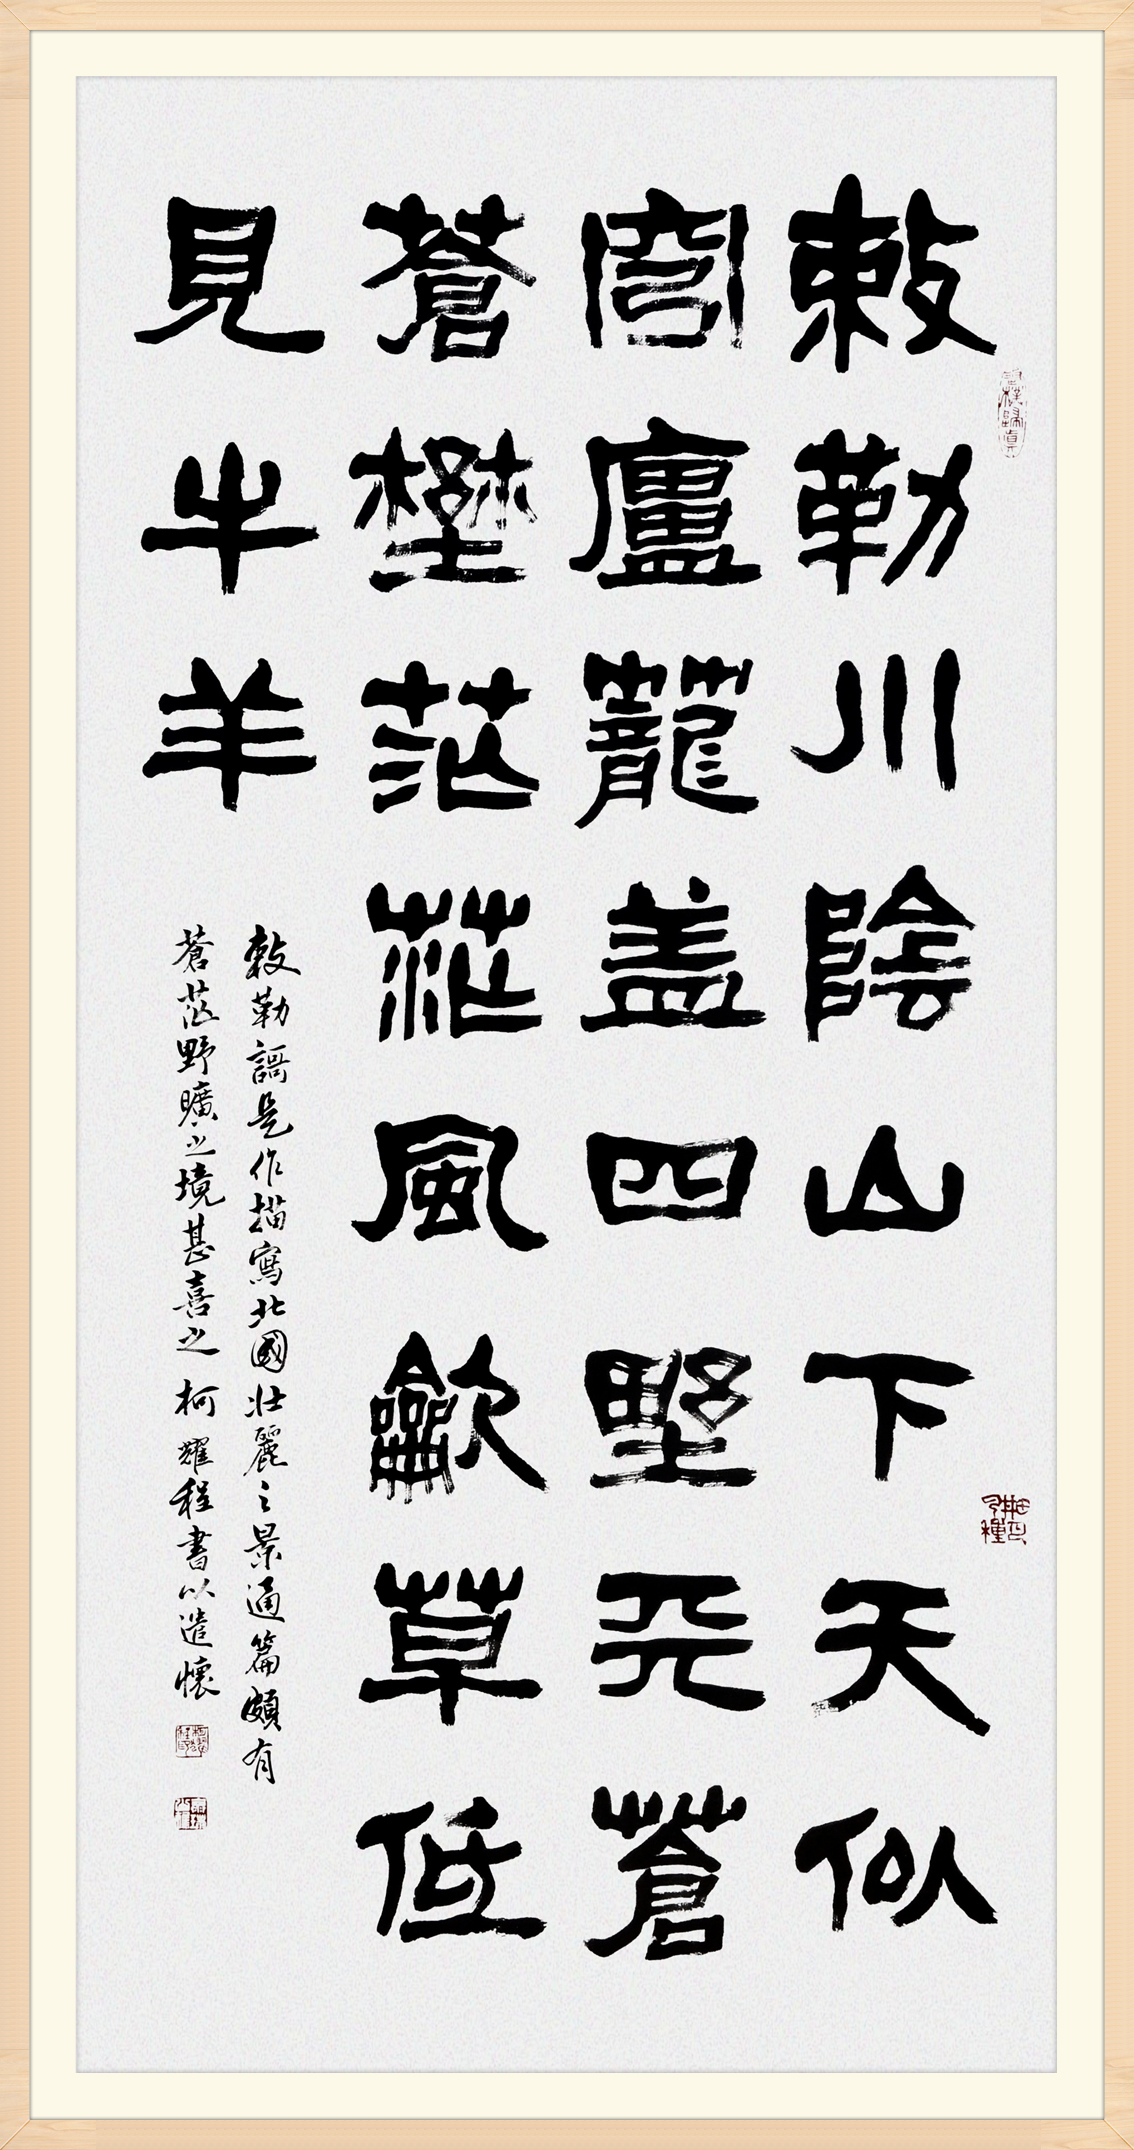 敕勒川陰山下天似
穹廬籠盖四墅天蒼
蒼壄茫茫風龡草低
見牛羊
敕勒謌是作描寫北國壯麗之景通篇頗有
蒼茫野曠之境甚喜之 柯耀程書以遣懷